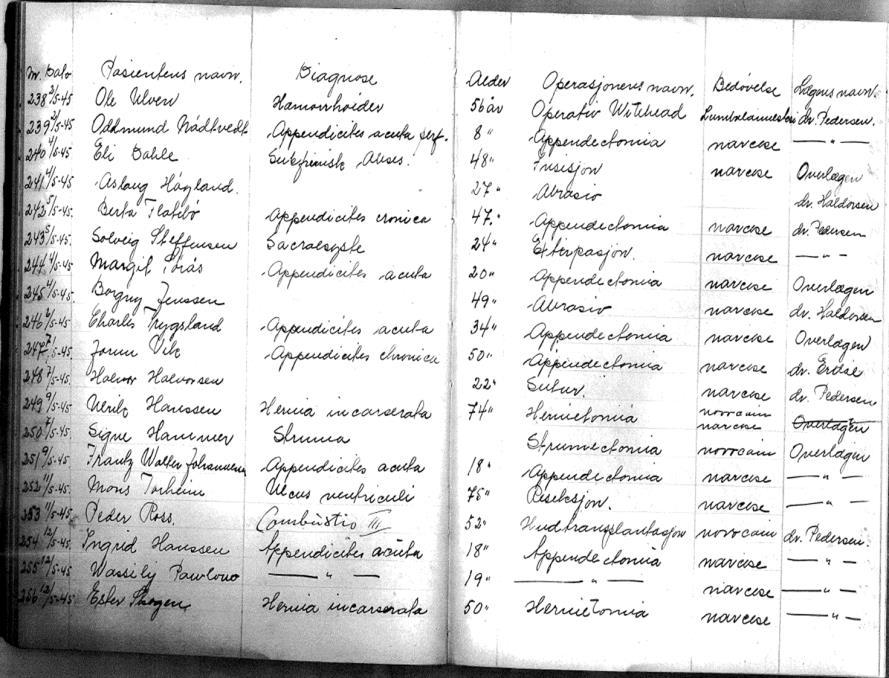 Nr. Dato Pasientens navn. Diagnose Alder Operasjonens navn. Bedøvelse Lægens navn.
238 2/5-45 Ole Ulven Hamorrhoider 56 år Operativ Witehead Lumbalanestesi dr. Pedersen.
239 3/5-45 Oddmund Nådtvedt Appendicites acuta perf. 8 " Appendectomia narcose — " —
240 4/5-45. Eli Dahle Subfrenisk Abses. 48 " Insisjon narcose Overlægen
241 4/5-45 Aslaug Høgland. 27 " Abrasio dr. Haldorsen
242 5/5-45. Berta Flatebø Appendicites cronica 47. " Appendectomia narcose dr. Pedersen
243 5/5-45. Solveig Steffensen Sacralcyste 24 " Exterpasjon. narcose — " —
244 4/5-45. Margit Appendicites acuta 20 " Appendectomia narcose Overlægen
245 6/5-45. Borgny Jenssen 49 " Abrasio narcose dr. Haldorsen
246 6/5-45. Charles Trygsland Appendicites acuta 34 " Appendectomia narcose Overlægen
247 7/5-45. Jorun Vik Appendicites chronica 50 " Appendectomia narcose dr.
248 7/5-45. Halvor Halvorsen 22 " Sutur. narcose dr. Pedersen
249 9/5-45. Ulrik Hanssen Hernia incarserata 74 " Hernietomia novocain narcose Overlægen
250 7/5-45. Signe Hammer Struma Strumectomia novocain Overlægen
251 9/5-45. Frantz Walter Johannesen Appendicites acuta 18 " Appendectomia narcose — " —
252 11/5-45. Mons Torheim Ulcus ventriculi 75 " Reseksjon. narcose — " —
253 11/5-45 Peder Ross. Combustio III 52 " Hudtransplantasjon novocain dr. Pedersen.
254 12/5-45. Ingrid Hanssen Appendicites acuta 18 " Appendectomia narcose — " —
255 12/5-45. Wassilij Pawlowo — " — 19 " — " — narcose — " —
256 12/5-45. Ester Skogen Hernia incarserata 50 " Hernietomia narcose — " —